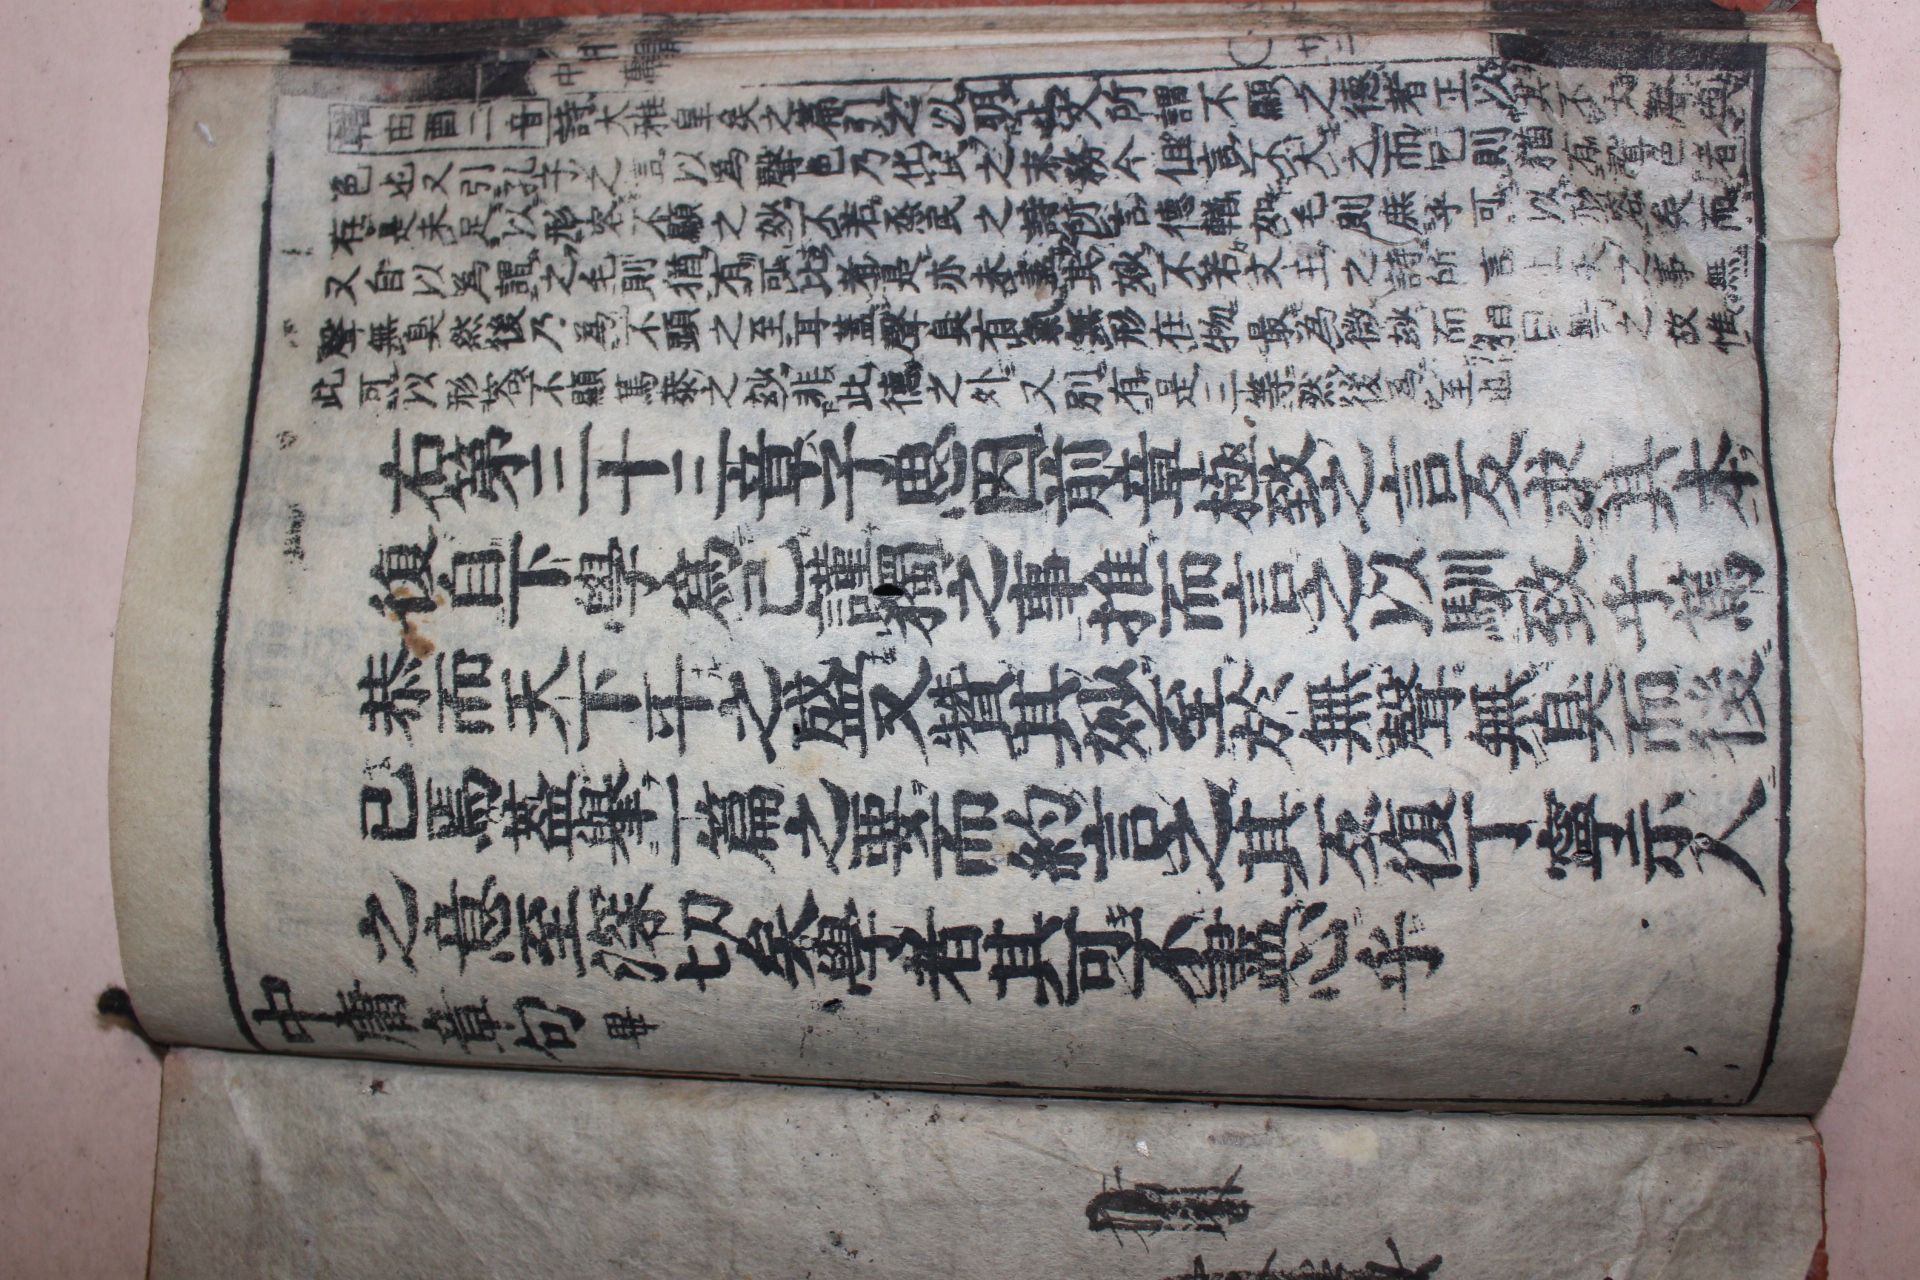 輶由酉二音詩大雅皇矣之篇引之以明上文所謂不顯之德者正以其不大聲與
色也又引孔子之言以為聲色乃化民之末務今但言不大之而已則猶有聲色者
存是未足以形容不顯之妙不若烝民之詩所言德輶如毛則庶乎可以形容矣而
又自以為謂之毛則猶有可比者是亦未盡其妙不若文王之詩所言上天之事無
聲無臭然後乃為不顯之至耳蓋聲臭有氣無形在物最為微妙而猶曰無之故惟
此可以形容不顯篤恭之妙非此德之外又別有是三等然後為至也
右第三十三章子思因前章極致之言反求其本
復自下學爲己謹獨之事推而言之以馴致乎篤
恭而天下平之盛又贊其妙至於無聲無臭而後
已焉蓋舉一篇之要而約言之其反復丁寧示人
之意至深切矣學者其可不盡心乎
中庸章句 畢
中庸
廿二